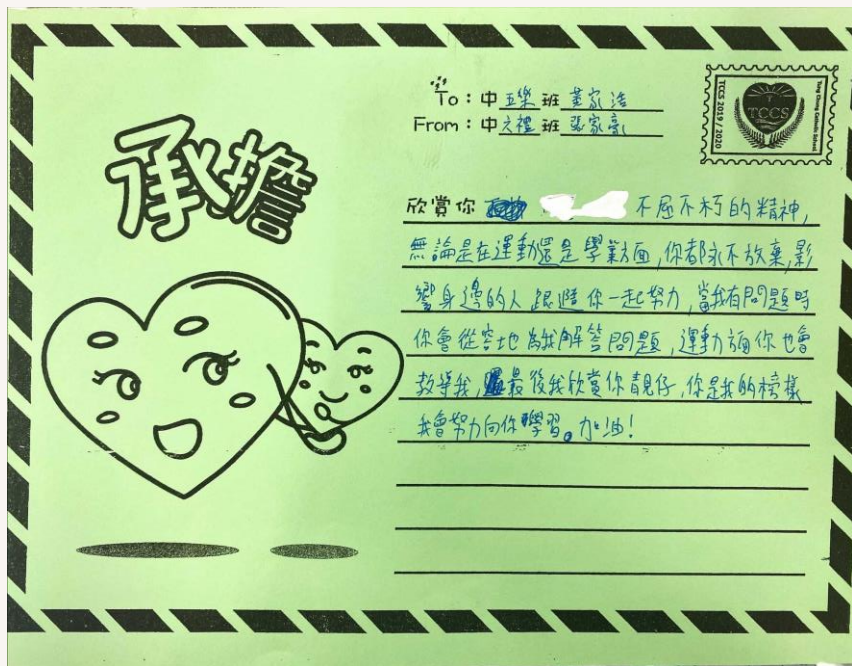 承擔
To：中五樂班 董家浩
From：中六禮班 張家豪
TCCS 2019 / 2020
TCCS
Tung Chung Catholic School
欣賞你 不屈不朽的精神，
無論是在運動還是學業方面，你都永不放棄，影
響身邊的人跟隨你一起努力，當我有問題時
你會從容地為我解答問題，運動方面你也會
教導我，最後我欣賞你靚仔，你是我的榜樣
我會努力向你學習。加油！